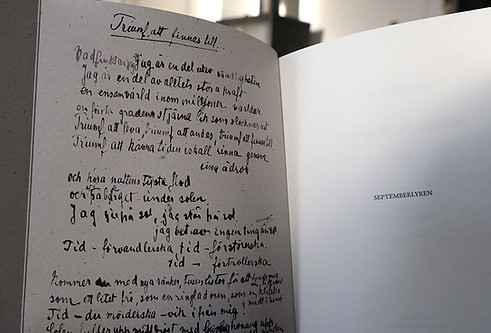 Triumf att finnas till.
Vad fruktar jag jag är en del utav oändligheten
Jag är en del av alltets stora kraft
en ensam värld inom millioner världar
en första gradens stjärna lik som slocknar sist
Triumf att leva, triumf att andas, triumf att finnas till
Triumf att känna tiden iskall rinna genom
sina ådror
och höra nattens tysta flod
och stå på berget under solen
Jag går på sol, jag står på sol
jag vet av ingenting annat
Tid - förvandlerska tid - förstörerska
tid - förtrollerska
Kommer du med nya ränker, tusen lister för att
som ett litet frö, som en ringlad orm, som en klippa
mitt i havet
Tid - du mörderska - vik ifrån mig!
Solen fyller upp mitt bröst med honung upp
SEPTEMBERLYREN